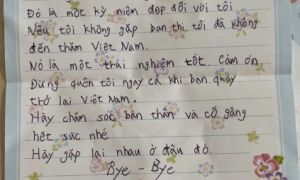 Đó là một kỷ niệm đẹp đối với tôi
Nếu tôi không gặp bạn thì tôi đã không
đến thăm Việt Nam.
Nó là một trải nghiệm tốt Cảm ơn
Đừng quên tôi ngay cả khi bạn quay
trở lại Việt Nam.
Hãy chăm sóc bản thân và cố gắng
hết sức nhé.
Hãy gặp lại nhau ở đâu đó.
Bye - Bye